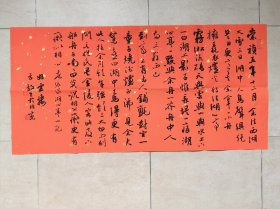 崇禎五年十二月余住西湖
大雪三日湖中人鳥聲俱絕
是日更定矣余拏一小舟
擁毳衣爐火獨往湖心亭看雪
霧凇沆碭天與雲與山與水上下
一白湖上影子惟長堤一痕湖
心亭一點與余舟一芥舟中人
兩三粒而已
到亭上有兩人鋪氈對坐一
童子燒酒爐正沸見余大
喜曰湖中焉得更有此人
拉余同飲余強飲三大白而別
問其姓氏是金陵人客此及下
船舟子喃喃曰莫說相公痴更有
痴似相公者